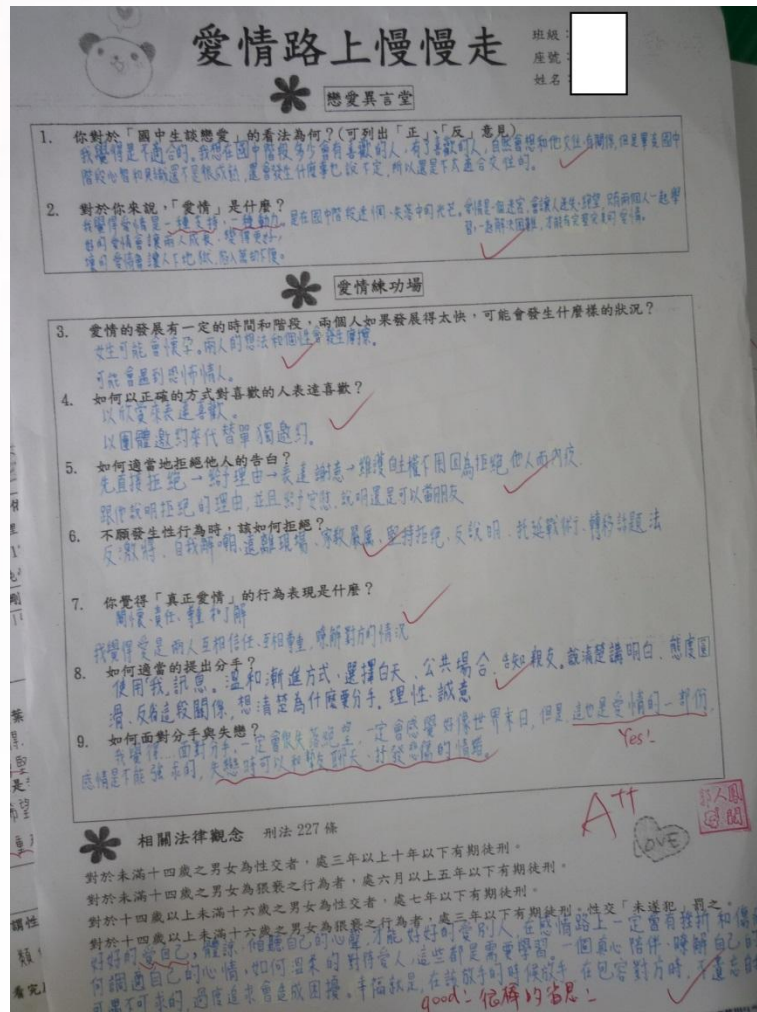 愛情路上慢慢走
班級：
座號：
姓名：
戀愛異言堂
1. 你對於「國中生談戀愛」的看法為何？(可列出「正」、「反」意見)
我覺得是不適合的。我想在國中階段多少會有喜歡的人，有了喜歡的人，自然會想和他交往、有關係，但是畢竟國中
階段心智和見識還不是很成熟，還會發生什麼事也說不定，所以還是不太適合交往的。
2. 對於你來說，「愛情」是什麼？
我覺得愛情是一種支持，一種動力。是在國中階段迷惘、失落中的光芒。愛情是一個迷宮，會讓人迷失、絕望，只有兩個人一起學
好的愛情會讓兩人成長，變得更好，習，一起解決困難，才能有完整完美的愛情。
壞的愛情會讓人下地獄，陷入萬劫不復。
愛情練功場
3. 愛情的發展有一定的時間和階段，兩個人如果發展得太快，可能會發生什麼樣的狀況？
女生可能會懷孕。兩人的想法和個性會發生摩擦。
可能會遇到恐怖情人。
4. 如何以正確的方式對喜歡的人表達喜歡？
以欣賞來表達喜歡。
以團體邀約來代替單獨邀約。
5. 如何適當地拒絕他人的告白？
先直接拒絕→給予理由→表達謝意→維護自主權不用因為拒絕他人而內疚
跟他說明拒絕的理由，並且給予安慰，說明還是可以當朋友
6. 不願發生性行為時，該如何拒絕？
反激將、自我解嘲、遠離現場、家教嚴厲、堅持拒絕、反說明、托延戰術、轉移話題法
7. 你覺得「真正愛情」的行為表現是什麼？
關懷、責任、尊重和了解
我覺得愛是兩人互相信任、互相尊重，瞭解對方的情況
8. 如何適當的提出分手？
使用「我」訊息。溫和漸進方式、選擇白天、公共場合、告知親友。說清楚講明白、態度圓
滑、反省這段關係，想清楚為什麼要分手。理性、誠意
9. 如何面對分手與失戀？
我覺得，面對分手，一定會很失落絕望，一定會感覺好像世界末日，但是，這也是愛情的一部份，
感情是不能強求的，失戀時可以和朋友聊天，抒發悲傷的情緒。
Yes!
A++
LOVE
相關法律觀念 刑法 227 條
對於未滿十四歲之男女為性交者，處三年以上十年以下有期徒刑。
對於未滿十四歲之男女為猥褻之行為者，處六月以上五年以下有期徒刑。
對於十四歲以上未滿十六歲之男女為性交者，處七年以下有期徒刑。
對於十四歲以上未滿十六歲之男女為猥褻之行為者，處三年以下有期徒刑。性交「未遂犯」罰之。
好好的愛自己，體諒、傾聽自己的心聲，才能好好的愛別人，在感情路上一定會有挫折和傷
何調適自己的心情，如何溫柔的對待愛人，這些都是需要學習。一個真心陪伴、瞭解自己的
可遇不可求的，過度追求會造成困擾。幸福就是，在該放手的時候放手，在包容對方時，不遺忘自
good! 很棒的省思!